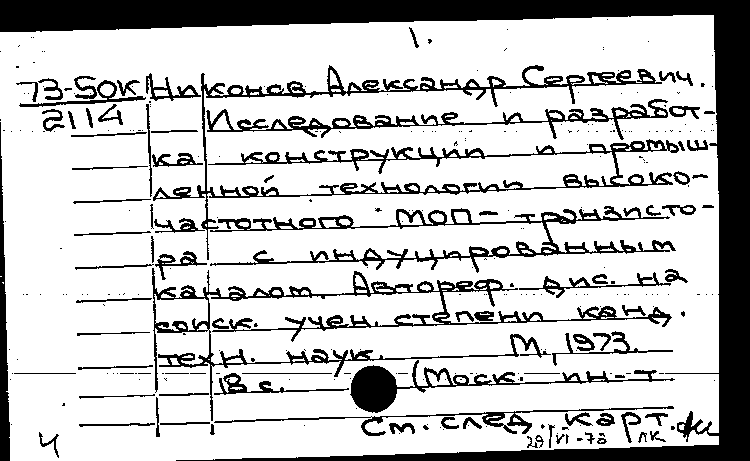 1.
73-50К Никонов, Александр Сергеевич.
2114 Исследование и разработ-
ка конструкции и промыш-
ленной технологии высоко-
частотного МОП-транзисто-
ра с индуцированным
каналом. Автореф. дис. на
соиск. учен. степени канд.
техн. наук. М., 1973.
18 с. (Моск. ин-т
См. след. карт.
Ч 28/VI-73 ЛК